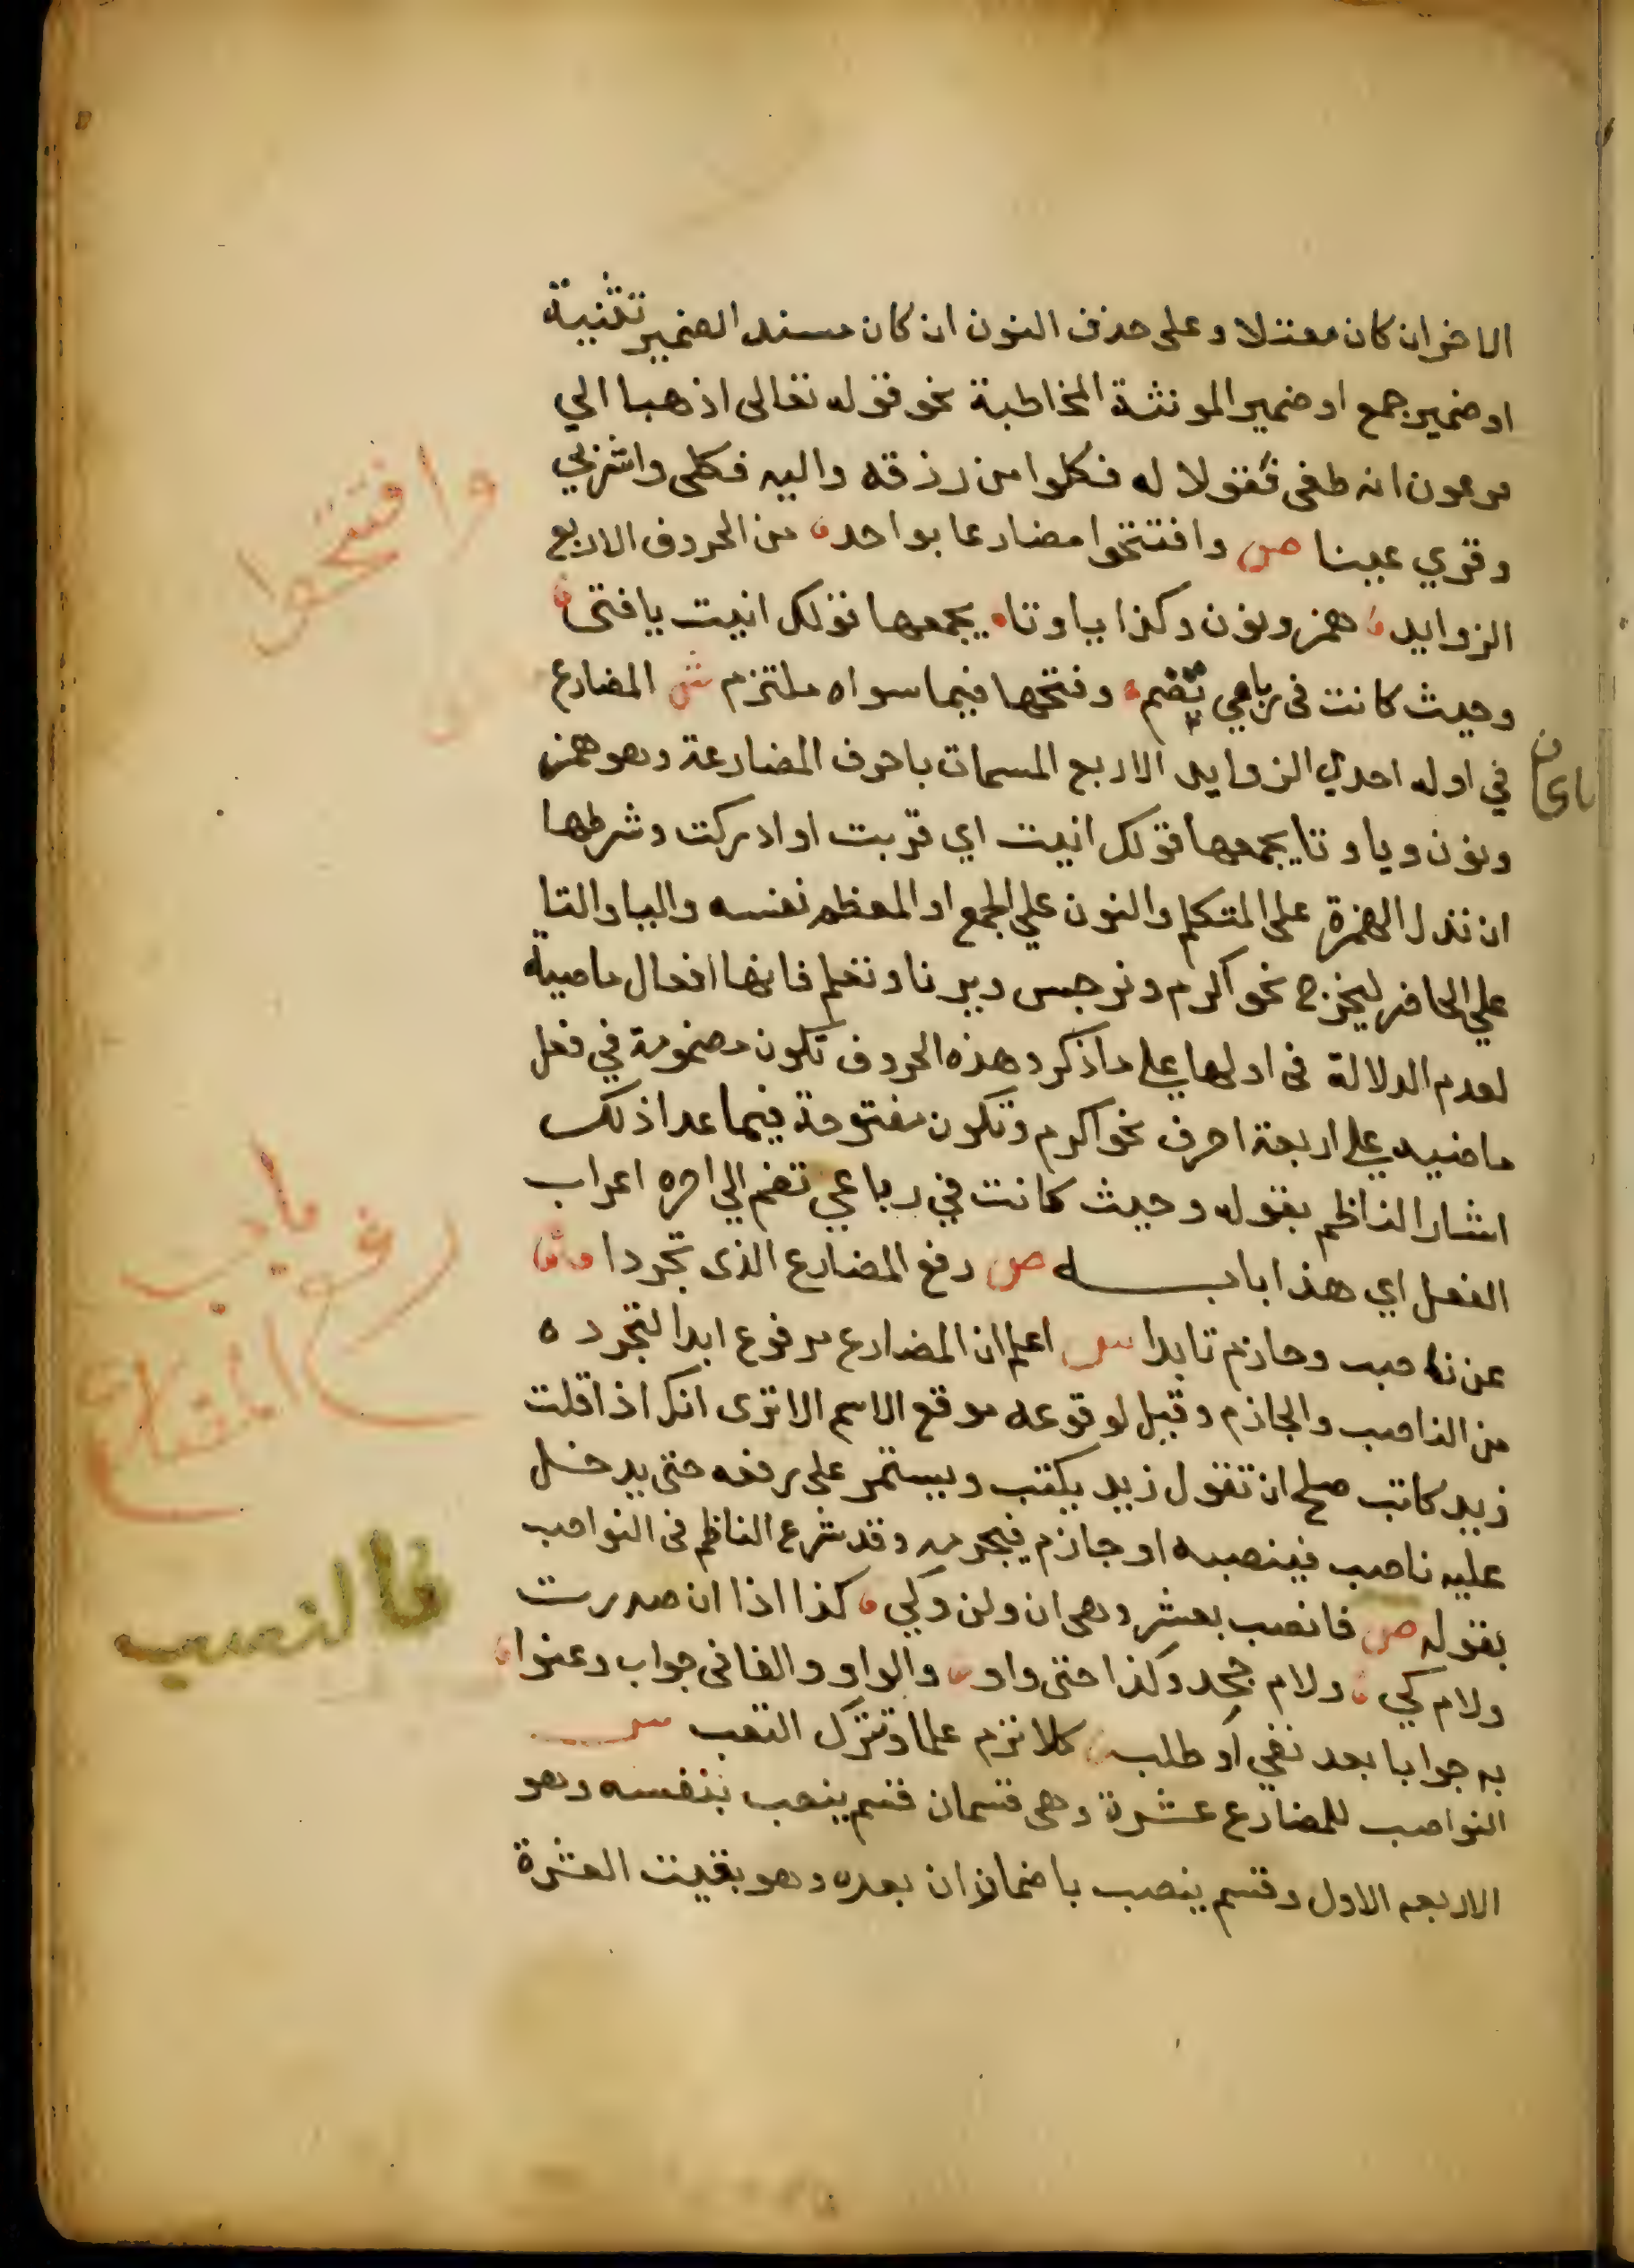 الاخر ان كان معتلا وعلى حذف النون ان كان مسند الضمير تثنية
او ضمير جمع او ضمير المونثة المخاطبة نحو قوله تعالى اذهبا الي
فرعون انه طغى فقولا له فكلوا من رزقه واليه فكلى واشربي
وقري عينا ص وافتتحوا مضارعا بواحد من الحروف الاربع
الزوايد همز ونون وكذا يا وتا يجمعها قولك انيت يا فتى
وحيث كانت فى رباعي تضم وفتحها فيما سواه ملتزم ش المضارع
في اوله احدي الزوايد الاربع المسمات باحرف المضارعة وهو همز
ونون ويا وتا يجمعها قولك انيت اي قربت او ادركت وشرطها
ان تدل الهمزة على المتكلم والنون علي الجمع او المعظم نفسه واليا والتا
علي الحاضر ليخرج نحو اكرم ونرجس ويرنا وتعلم فانها افعال ماضية
لعدم الدلالة فى اولها على ما ذكر وهذه الحروف تكون مضمومة في فعل
ماضيه على اربعة احرف نحو اكرم وتكون مفتوحة فيما عدا ذلك
اشار الناظم بقوله وحيث كانت في رباعي تضم الي اخره اعراب
الفعل اي هذا بابه ص رفع المضارع الذى تجردا
عن ناصب وجازم تابدا ش اعلم ان المضارع مرفوع ابدا لتجرده
من الناصب والجازم وقيل لوقوعه موقع الاسم الا ترى انك اذا قلت
زيد كاتب صلح ان تقول زيد يكتب ويستمر على رفعه حتى يدخل
عليه ناصب فينصبه او جازم فيجزمه وقد شرع الناظم فى النواصب
بقوله ص فانصب بعشر وهى ان ولن وكي كذا اذا ان صدرت
ولام كي ولام جحد وكذا حتى واو والواو والفا فى جواب وعنوا
به جوابا بعد نفي او طلب كلا ترم علما وتترك التعب ش
النواصب للمضارع عشرة وهى قسمان قسم ينصب بنفسه وهو
الاربعه الاول وقسم ينصب باضمار ان بعده وهو بقيت العشرة
وافتتحوا
باب
رفع
المضارع
فالنصب